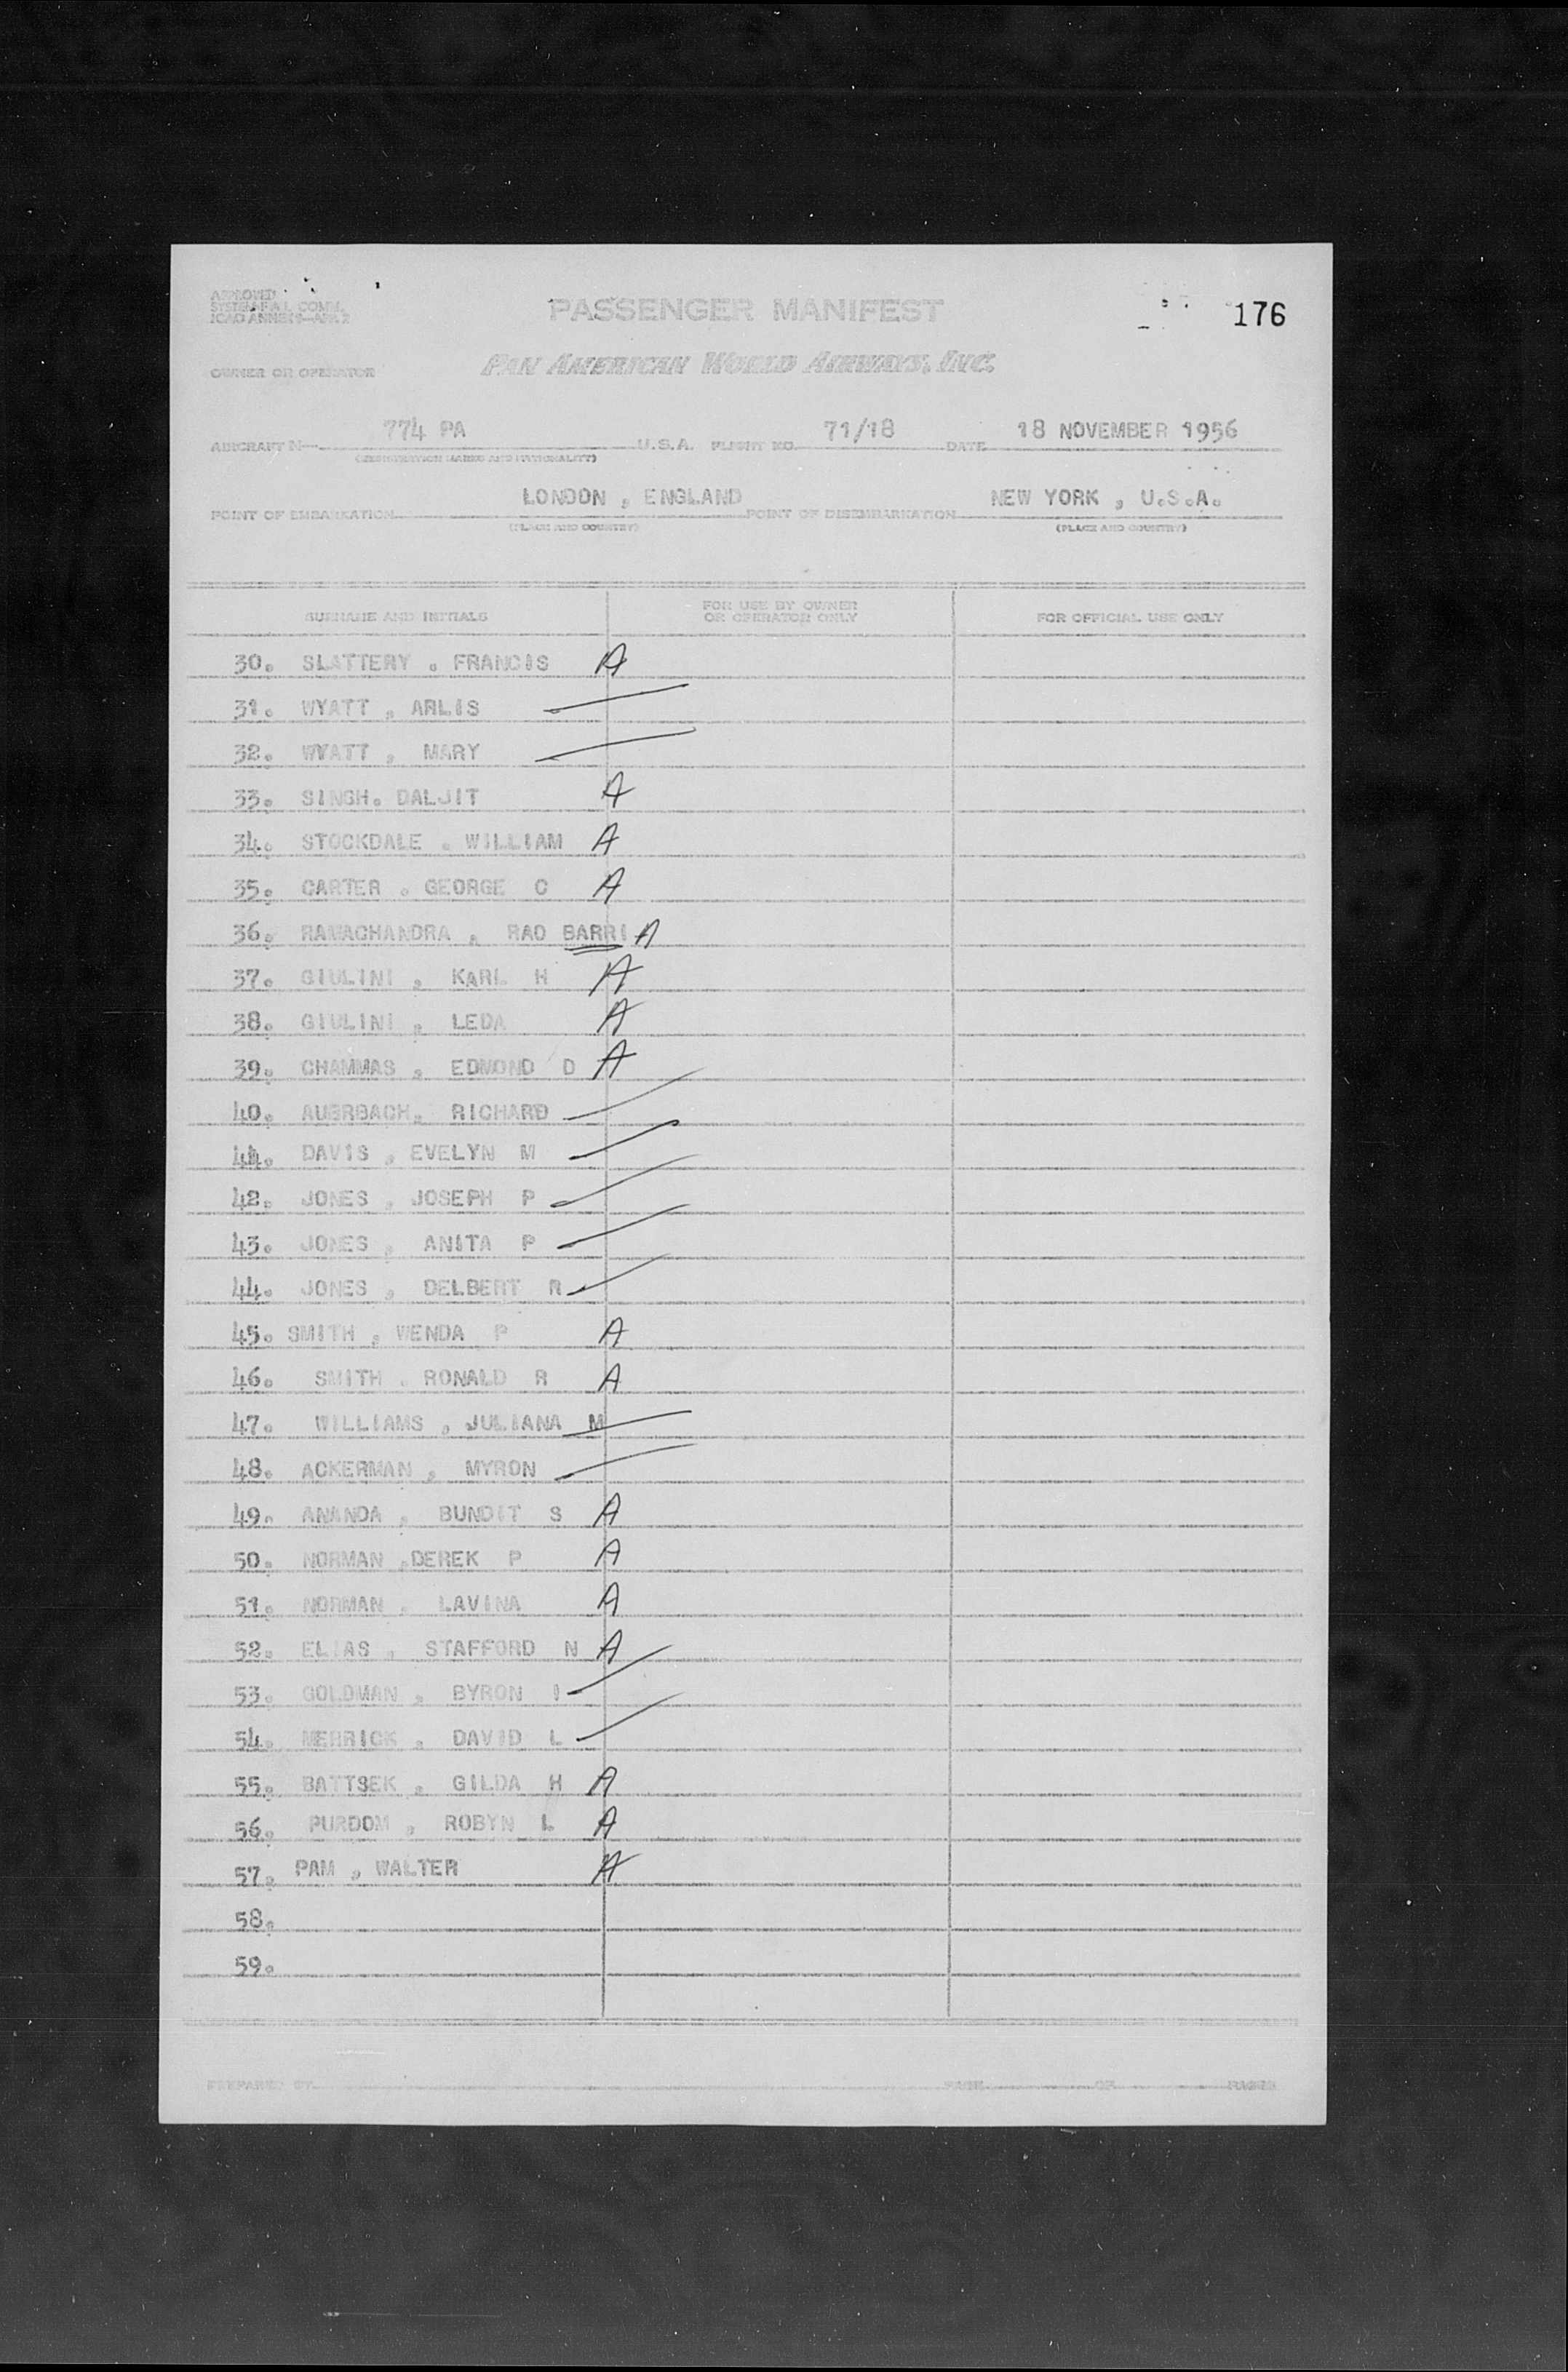 APPROVED
SYSTEM F.A.L. COMM.
ICAO ANNEX 9—APP. 2
PASSENGER MANIFEST
176
OWNER OR OPERATOR
PAN AMERICAN WORLD AIRWAYS, INC.
AIRCRAFT N— 774 PA U.S.A. FLIGHT NO. 71/18 DATE 18 NOVEMBER 1956
(REGISTRATION MARKS AND NATIONALITY)
POINT OF EMBARKATION LONDON , ENGLAND POINT OF DISEMBARKATION NEW YORK , U.S.A.
(PLACE AND COUNTRY) (PLACE AND COUNTRY)
SURNAME AND INITIALS FOR USE BY OWNER OR OPERATOR ONLY FOR OFFICIAL USE ONLY
30. SLATTERY , FRANCIS A
31. WYATT , ARLIS
32. WYATT , MARY
33. SINGH. DALJIT A
34. STOCKDALE , WILLIAM A
35. CARTER , GEORGE C A
36. RAMACHANDRA , RAO BARRI A
37. GIULINI , KARL H A
38. GIULINI , LEDA A
39. CHAMMAS , EDMOND D A
40. AUERBACH, RICHARD
41. DAVIS , EVELYN M
42. JONES , JOSEPH P
43. JONES , ANITA P
44. JONES , DELBERT R
45. SMITH , WENDA P A
46. SMITH , RONALD R A
47. WILLIAMS , JULIANA M
48. ACKERMAN , MYRON
49. ANANDA , BUNDIT S A
50. NORMAN ,DEREK P A
51. NORMAN , LAVINA A
52. ELIAS , STAFFORD N A
53. GOLDMAN , BYRON I
54. MERRICK , DAVID L
55. BATTSEK , GILDA H A
56. PURDOM , ROBYN L A
57. PAM , WALTER A
58.
59.
PREPARED BY PAGE OF PAGES